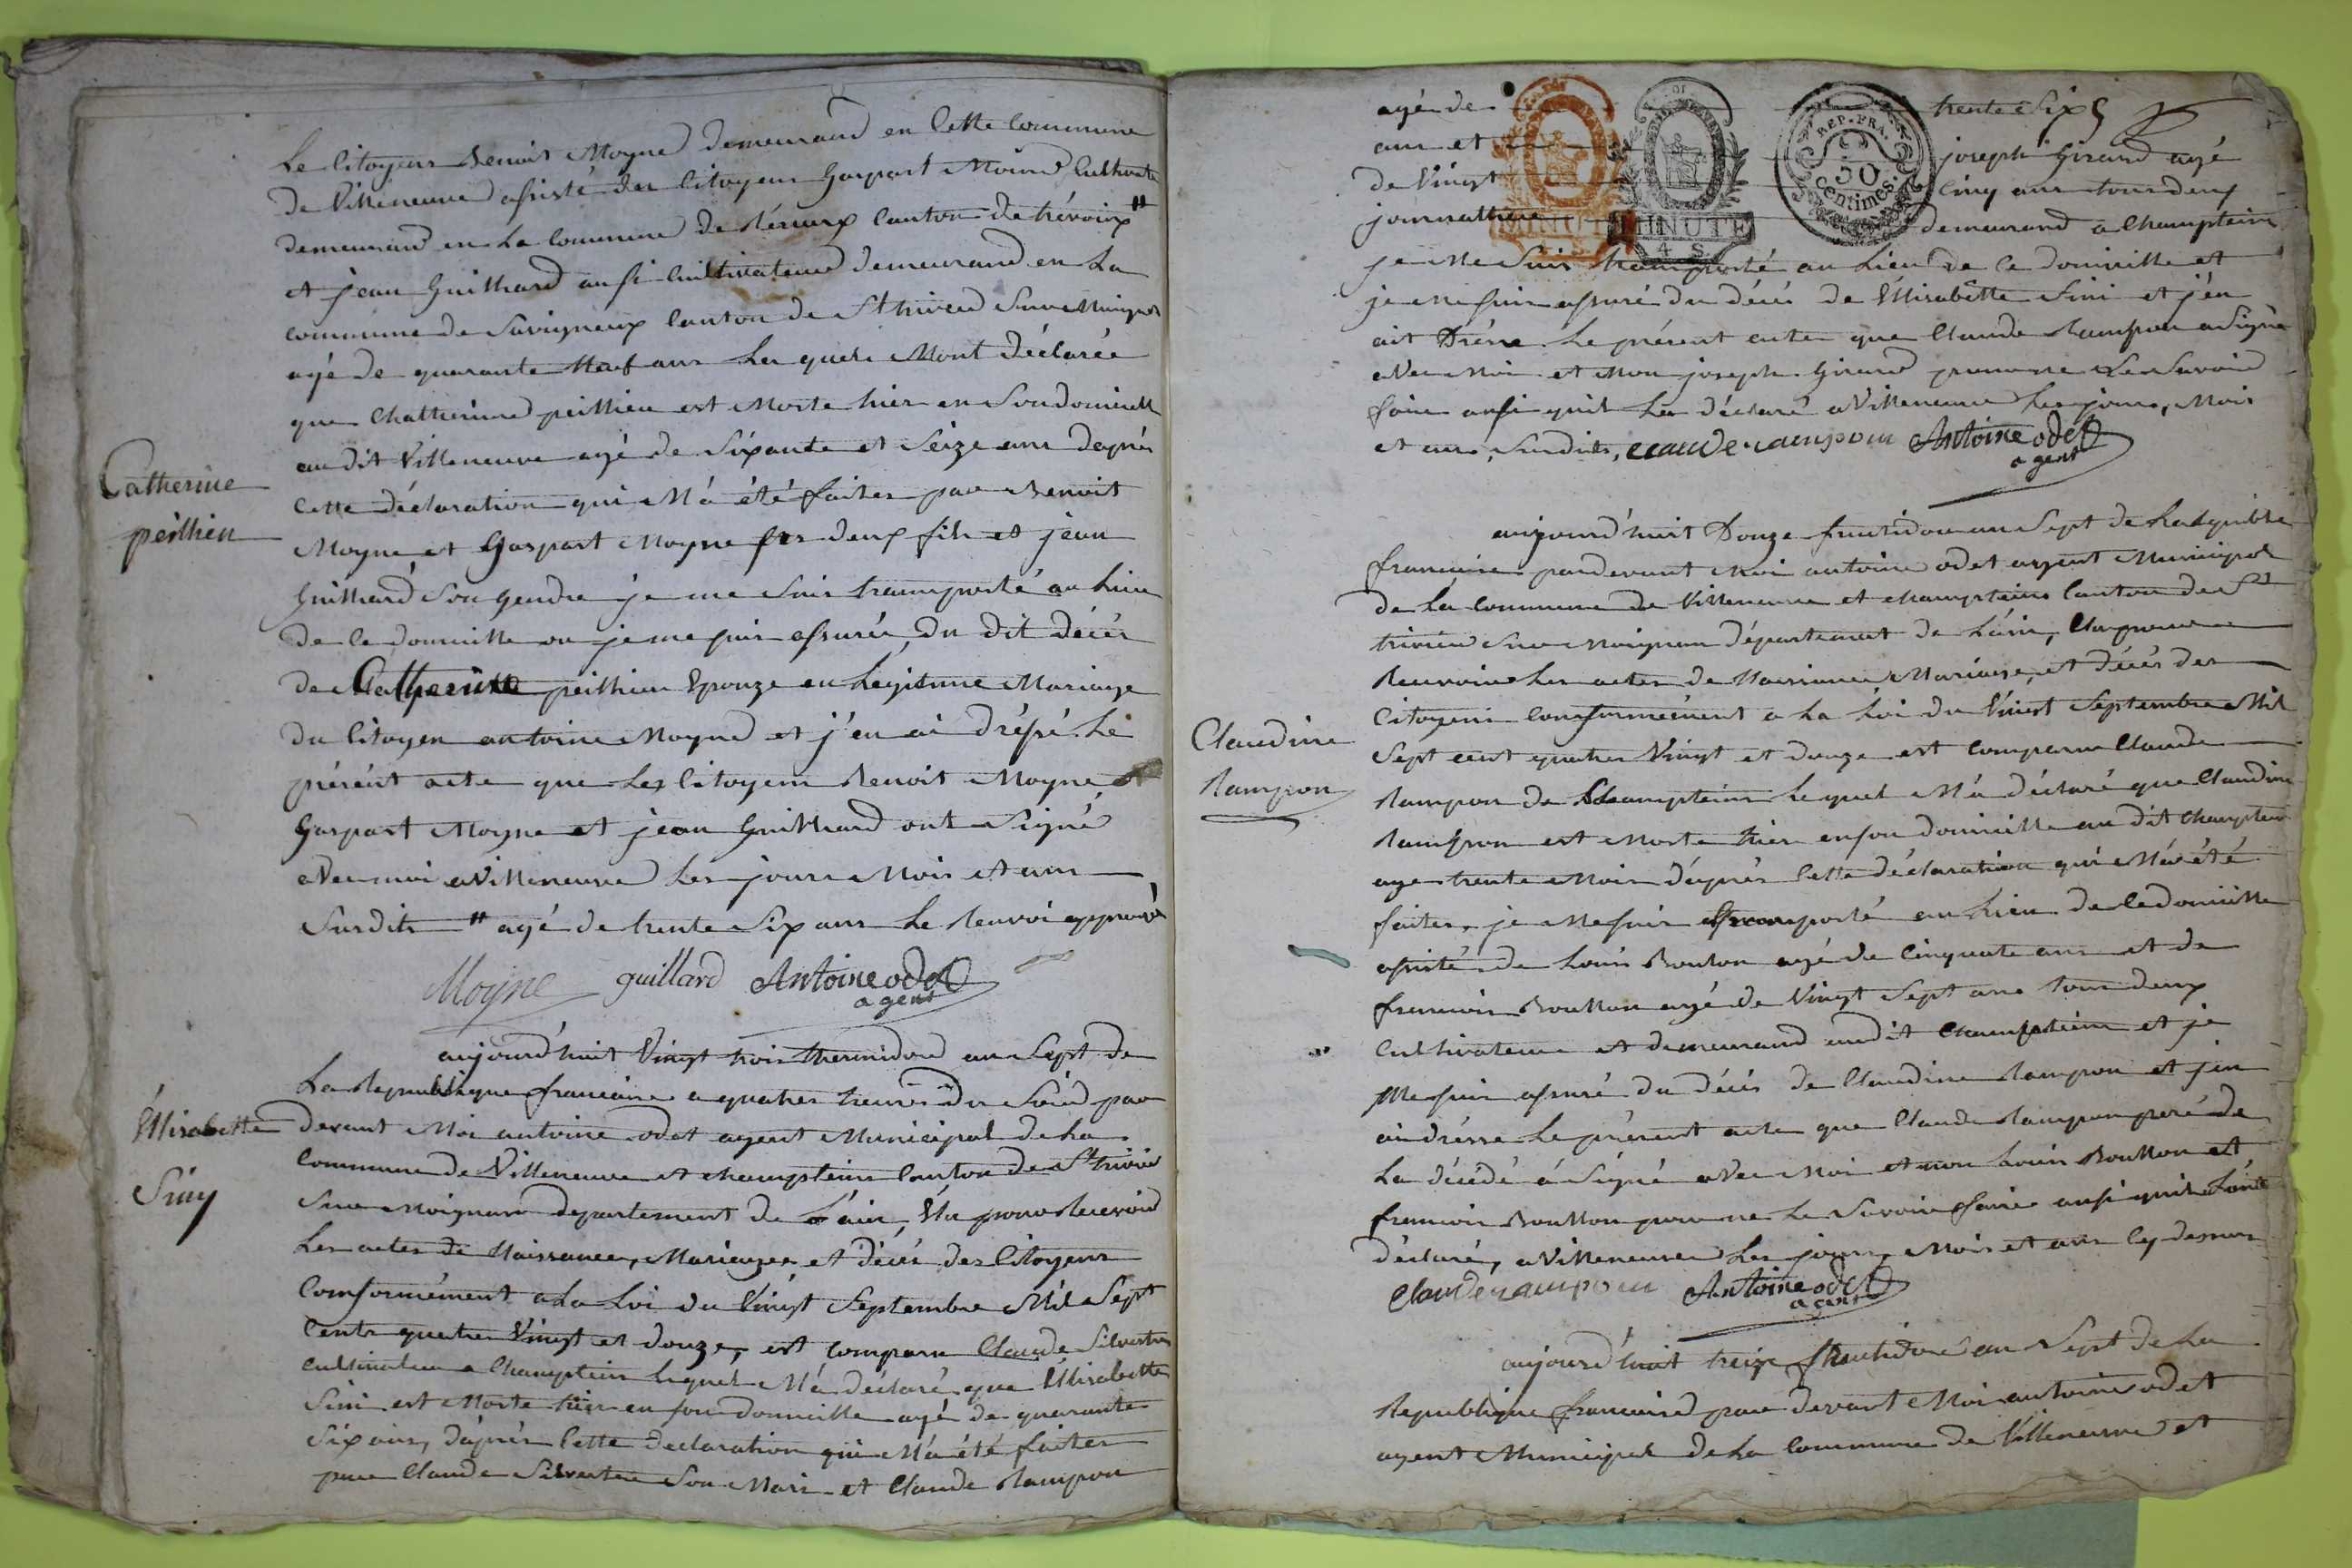 Le Citoyens Benoit Moyne demeurand en Cette Commune
de Villeneuve assisté des Citoyens Gaspart Moine Cultivate
demeurand en La Commune de Rérieux Canton de trévoux "
et jean Guilliard ausi Cultivateur demeurand en La
commune de Savigneux Canton de St trivier Sur Moignan
agé de quarante Neuf ans Les quels Mont déclarée
que Chattherine peillieu est Morte hier en Son domicille
au dit Villeneuve agé de Sixante et Seize ans dapres
Cette déclaration qui M'a été faites par Benoit
Moyne et Gaspart Moyne ses deux fils et jean
Guilliard Son gendre je me Suis transporté au Lieu
de Ce domicille ou je me suis assurée du dit décès
de Catherine peillieu Epouze en Légitime Mariage
du Citoyen antoine Moyne et j'en ai dréssé Le
présént acte que Les Citoyens Benoit Moyne et
Gaspart Moyne et jean Guilliard ont Signé
avec moi a Villeneuve Les jours Mois et ans
Susdits " agé de trente Six ans Le renvoi approuvé
Moyne guillard Antoine odet
agent
Catherine
peillieu
aujourd'huit Vingt trois thermidord an Sept de
La Republique francaise a quatres heures du Soird par
devant Moi antoine odet agent Municipal de La
Commune de Villeneuve et champteins Canton de St trivier
Sur Moignan département de L'ain, Elu pour Recevoir
Les actes de Naissances, Mariages et décès des Citoyens
Conformément a La Loi du Vingt Septembre Mil Sept
Cents quatres Vingt et douze, est comparu Claude Silvestre
cultivateur a Champtein Lequel M'a déclaré que Ellisabette
Sini est Morte hier en son domicille agé de quarante
Six ans, dáprès Cette déclaration qui M'a été faites
par Claude Silvestre Son Mari et Claude Rampon
Ellisabette
Siny
agé de trente Six
ans et joseph Girard agé
de Vingt Cinq ans tous deux
journallier demeurand a Champtein
je Me Suis transporté au Lieu de Ce domicille et
je me suis assuré du décès de Ellisabette Sini et j'en
ait Drésse Le présent actes que Claude Rampon a Signé
avec Moi et Non joseph Girard pour ne Le Savoir
faire ausi quil La déclaré a Villeneuve Les jours, Mois
et ans Susdits, claude rampon Antoine odet
agent
aujourd'huit Douze fructidor an Sept de La Republike
francaise pardevant Moi antoine odet argent Municipal
de La Commune de Villeneuve et champteins Canton de St
trivier Sur Moignan département de Láin, Elu pour
Recevoir Les actes de Naissances Mariages, et décès des
Citoyens Conformément a La Loi du Vingt Septembre Mil
Sept cent quatres Vingt et douze est Comparu Claude
Rampon de Champteins Le quel M'a déclaré que Claudine
Rampon est Morte hier en son domicille au dit Champtein
age trente Mois dáprès Cette déclaration qui M'a été
faites, je Me suis transporté au Lieu de Ce domicille
assisté de Louis Boullon agé de Cinquate ans et de
francois Boullon agé de Vingt Sept ans tous deux
Cultivateur et demeurand audit Champtein et je
Me suis assuré du décès de Claudine Rampon et j'en
ai drésse Le présent acte que Claude Rampon peré de
La décédé á Signé avec Moi et non Louis Boullon et
francois Boullon pour ne Le Savoir faire ausi quil Lont
déclaré, a Villeneuve Les jours, Mois et ans Cy dessus
Claude rampon Antoine odet
agent
Claudine
Rampon
aujourd'huit treize fructidor an Sept de La
Republique francaise par devant Moi antoine odet
agent Municipal de La Commune de Villeneuve et
REP. FRA.
50
centimes.
MINUTE
4 S
MINUTE